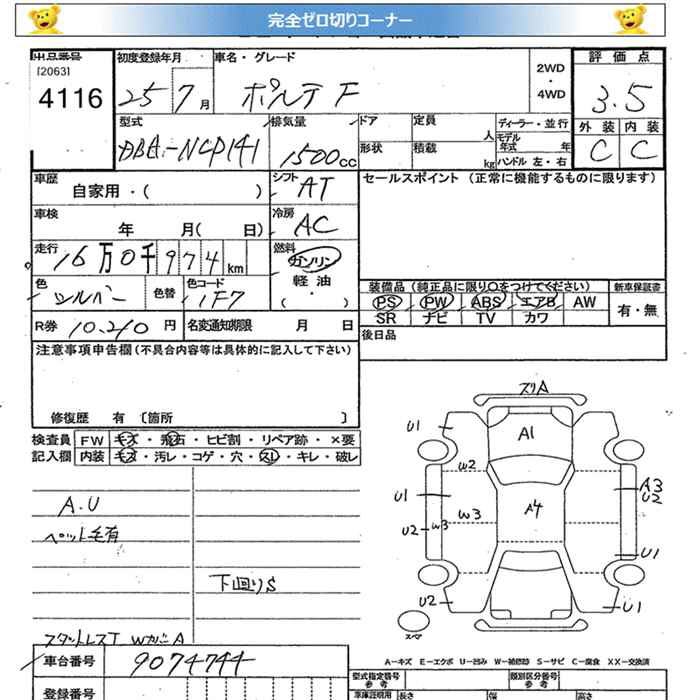 完全ゼロ切りコーナー
出品番号
[2063]
4116
初度登録年月
25 7 月
車名・グレード
ポルテ F
2WD
・
4WD
評 価 点
3.5
外 装 内 装
C C
型式
DBA-NCP141
排気量
1500 cc
ドア
定員
人
形状
積載
kg
ディーラー・並行
モデル
年式 年
ハンドル 左・右
車歴
自家用・( )
シフト
AT
車検
年 月( 日)
冷房
AC
走行
16 万 0 千 9 7 4 km
燃料
ガソリン
・
軽 油
・
( )
色
シルバー
色替
色コード
1F7
R券 10,210 円
名変通知期限 月 日
セールスポイント (正常に機能するものに限ります)
装備品(純正品に限り○をつけてください)
新車保証書
PS PW ABS エアB AW
SR ナビ TV カワ
有・無
後日品
注意事項申告欄(不具合内容等は具体的に記入して下さい)
修復歴 有 〔箇所 〕
検査員 FW キズ・飛石・ヒビ割・リペア跡・×要
記入欄 内装 キズ・汚レ・コゲ・穴・スレ・キレ・破レ
A.U
ペット毛有
下回りS
スタットレスT WカバーA
車台番号
9074744
登録番号
スリA
U1
A1
W2
U1
A3
U2
A4
W3
U2 W3
U1
U2
U1
スペア
A-キズ E-エクボ U-凹み W-補修跡 S-サビ C-腐食 XX-交換済
型式指定番号
参考
類別区分番号
参考
車庫証明用
長さ
幅
高さ